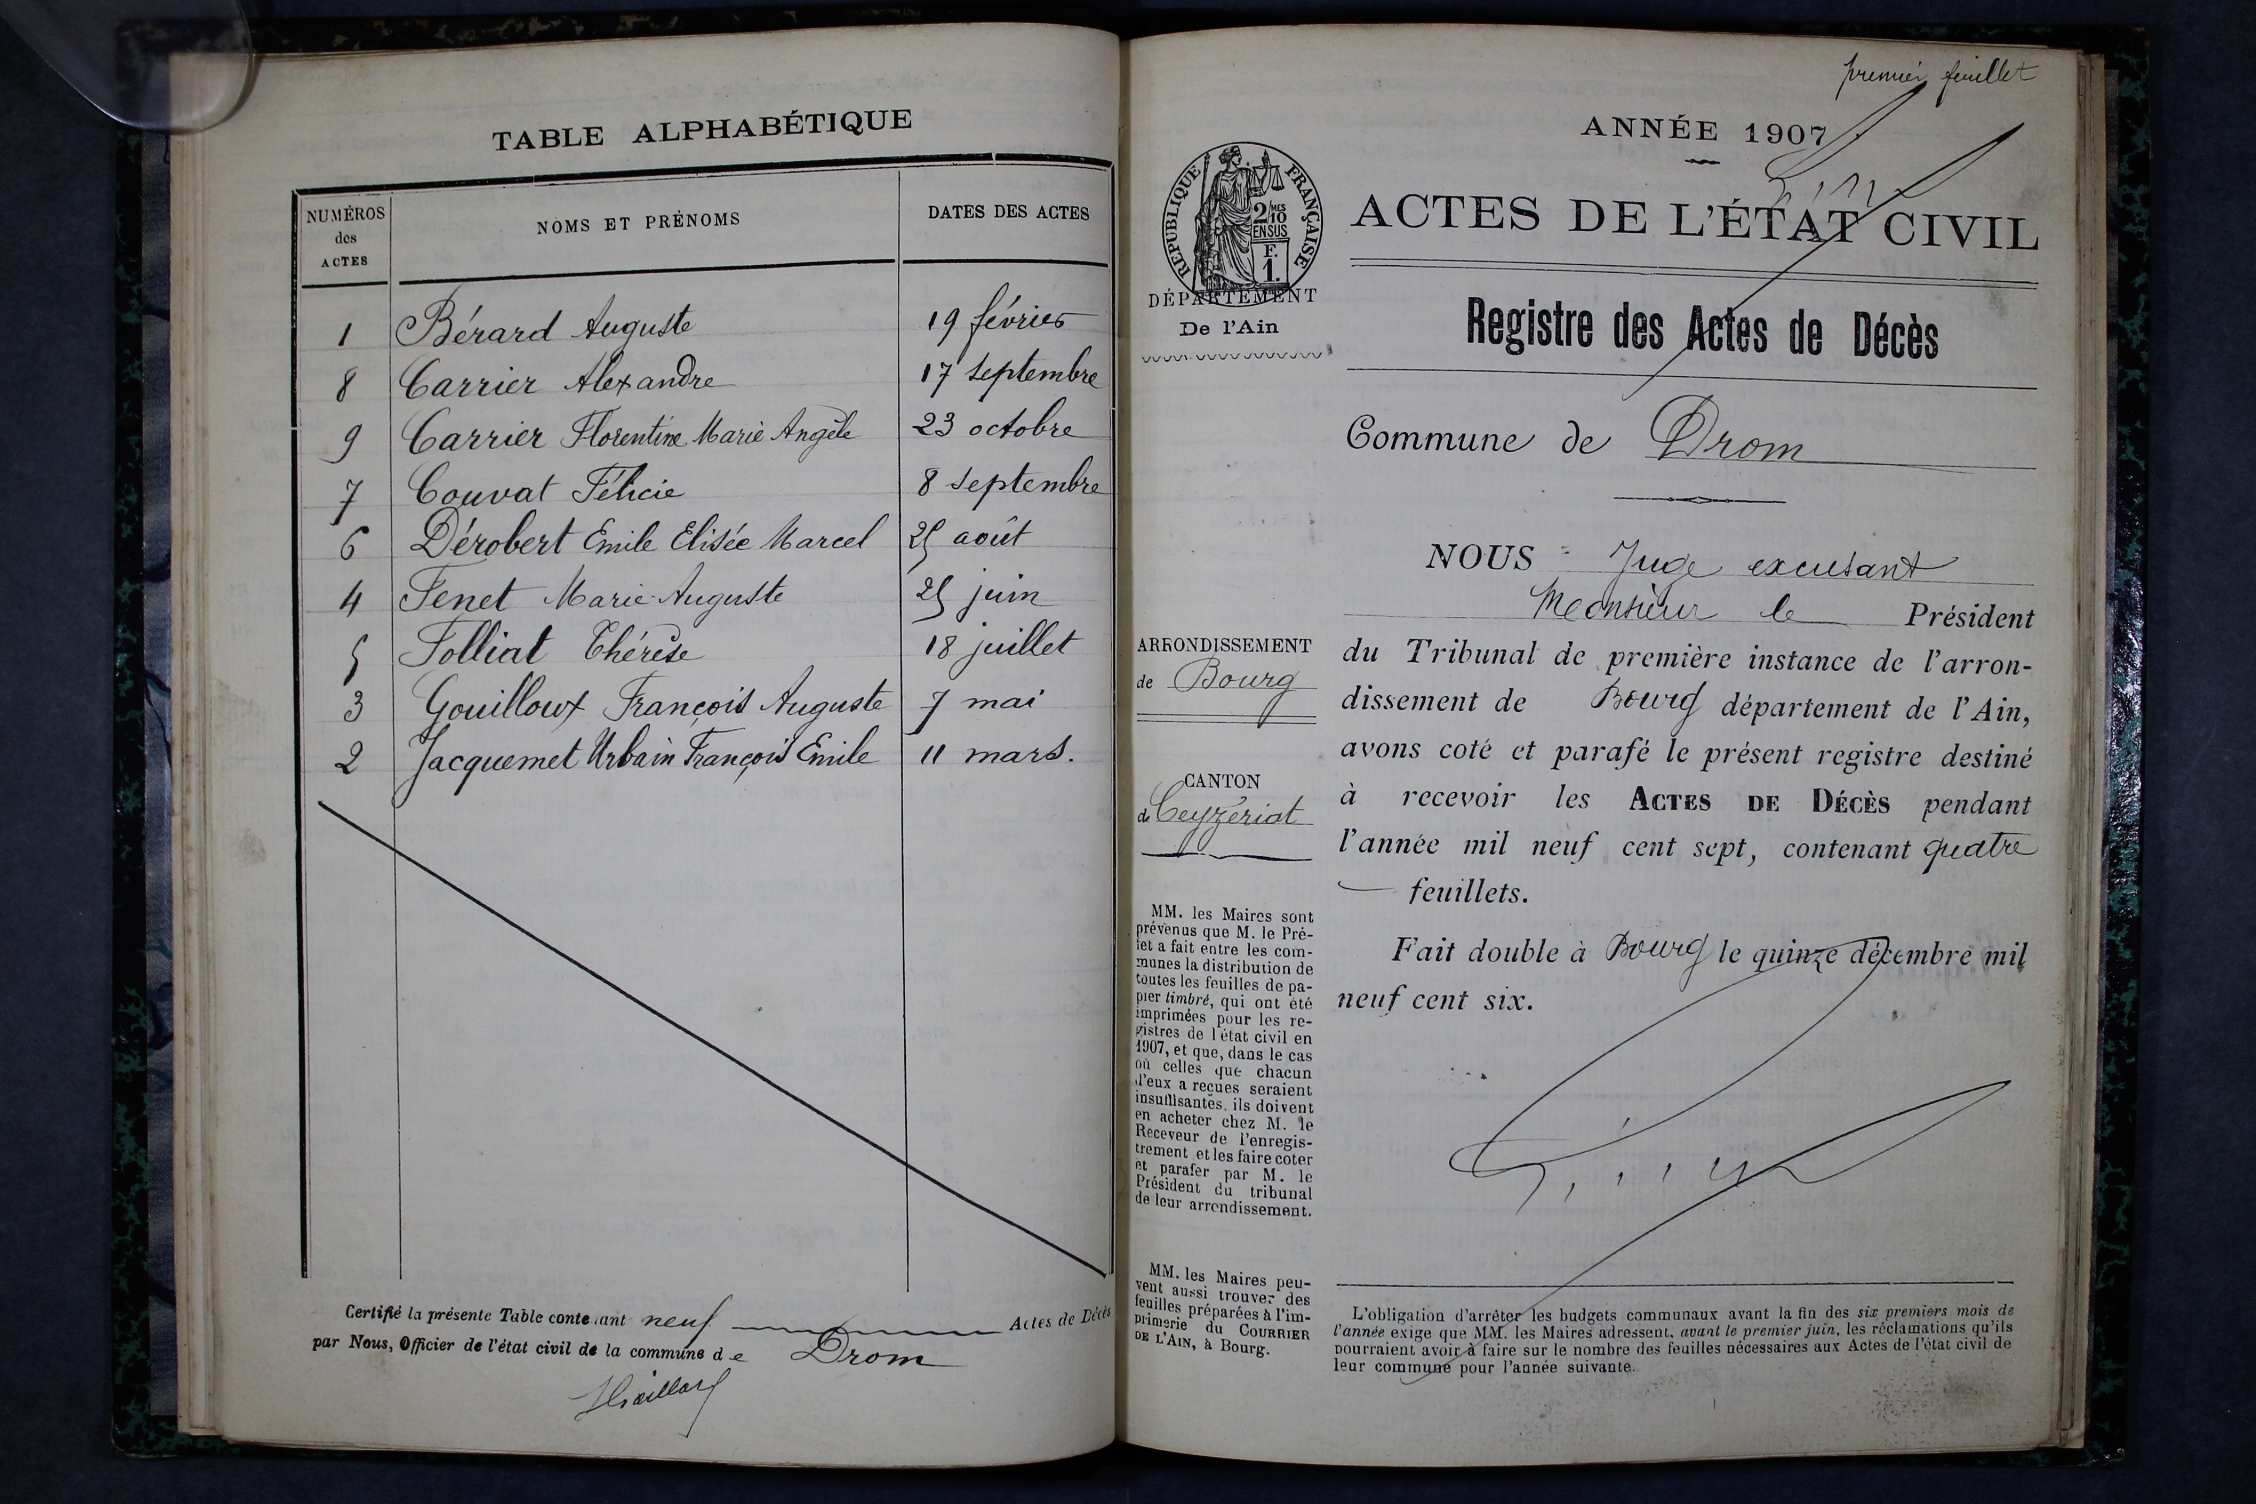 TABLE ALPHABÉTIQUE
NUMÉROS des ACTES
NOMS ET PRÉNOMS
DATES DES ACTES
1 Bérard Auguste 19 février
8 Carrier Alexandre 17 septembre
9 Carrier Florentine Marie Angèle 23 octobre
7 Couvat Félicie 8 septembre
6 Dérobert Emile Elisée Marcel 25 août
4 Fenet Marie Auguste 25 juin
5 Folliat Thérèse 18 juillet
3 Gouilloux François Auguste 7 mai
2 Jacquemet Urbain François Emile 11 mars.
Certifié la présente Table contenant neuf Actes de Décès
par Nous, Officier de l'état civil de la commune de Drom
premier feuillet
ANNÉE 1907
RÉPUBLIQUE FRANÇAISE
2/10 MES
EN SUS
F.
1.
ACTES DE L'ÉTAT CIVIL
DÉPARTEMENT
De l'Ain
Registre des Actes de Décès
Commune de Drom
NOUS Juge excusant
Monsieur le Président
du Tribunal de première instance de l'arron-
dissement de Bourg département de l'Ain,
avons coté et parafé le présent registre destiné
à recevoir les ACTES DE DÉCÈS pendant
l'année mil neuf cent sept, contenant quatre
feuillets.
Fait double à Bourg le quinze décembre mil
neuf cent six.
ARRONDISSEMENT
de Bourg
CANTON
de Ceyzériat
MM. les Maires sont
prévenus que M. le Pré-
fet a fait entre les com-
munes la distribution de
toutes les feuilles de pa-
pier timbré, qui ont été
imprimées pour les re-
gistres de l'état civil en
1907, et que, dans le cas
où celles que chacun
d'eux a reçues seraient
insuffisantes, ils doivent
en acheter chez M. le
Receveur de l'enregis-
trement et les faire coter
et parafer par M. le
Président du tribunal
de leur arrondissement.
MM. les Maires peu-
vent aussi trouver des
feuilles préparées à l'im-
primerie du COURRIER
DE L'AIN, à Bourg.
L'obligation d'arrêter les budgets communaux avant la fin des six premiers mois de
l'année exige que MM. les Maires adressent, avant le premier juin, les réclamations qu'ils
pourraient avoir à faire sur le nombre des feuilles nécessaires aux Actes de l'état civil de
leur commune pour l'année suivante.